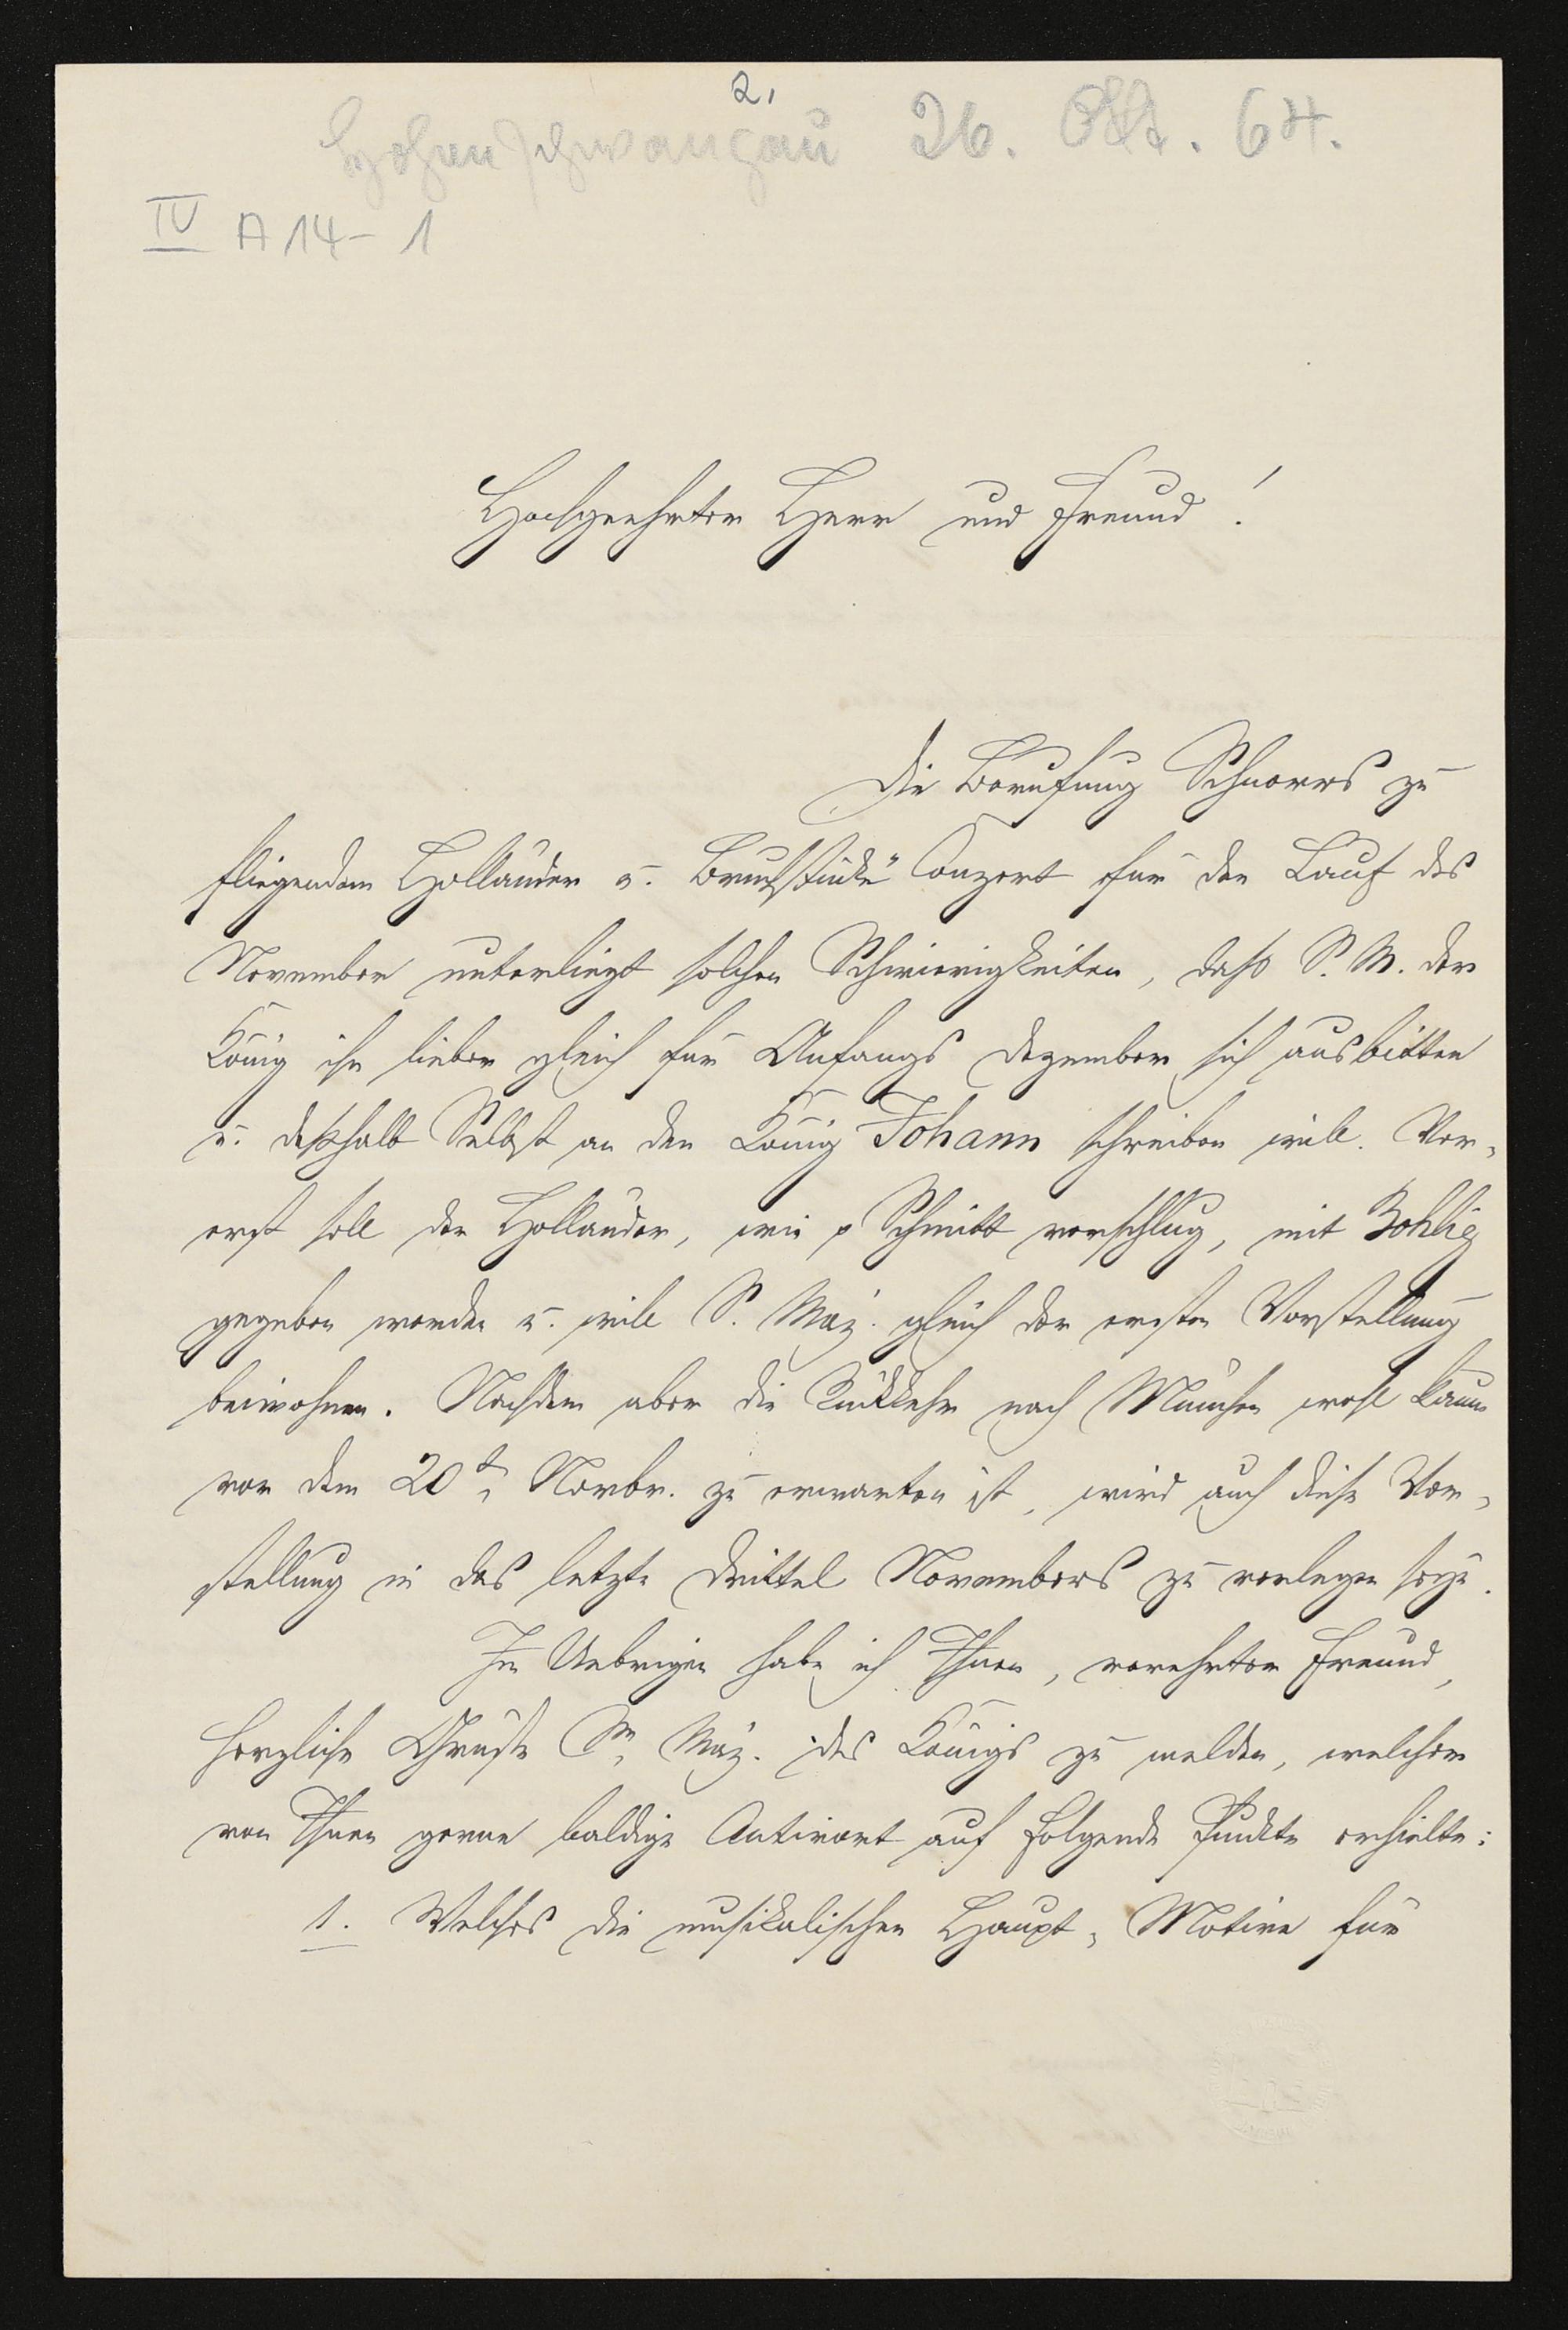 2,
Hohenschwangau 26. Okt. 64.
IV A 14 - 1
Hochgeehrter Herr und Freund!
Die Berufung Schnorrs zu
fliegendem Holländer u. Bruchstücke" Conzert für den Lauf des
November unterliegt solchen Schwierigkeiten, daß S. M. der
König ihn lieber gleich für Anfangs Dezember sich ausbitten
u. deßhalb Selbst an den König Johann schreiben will. Vor-
erst soll der Holländer, wie p Schmitt vorschlug, mit Bohlig
gegeben werden u. will S. Maj. gleich der ersten Vorstellung
beiwohnen. Nachdem aber die Rückkehr nach München wohl kaum
vor dem 20t. Novbr. zu erwarten ist, wird auch diese Vor-
stellung in das letzte Drittel Novembers zu verlegen seyn.
Im Uebrigen habe ich Ihnen, verehrter Freund,
herzliche Grüße Sr. Maj. des Königs zu melden, welcher
von Ihnen gerne baldige Antwort auf folgende Punkte erhielte:
1. Welches die musikalischen Haupt-Motive für